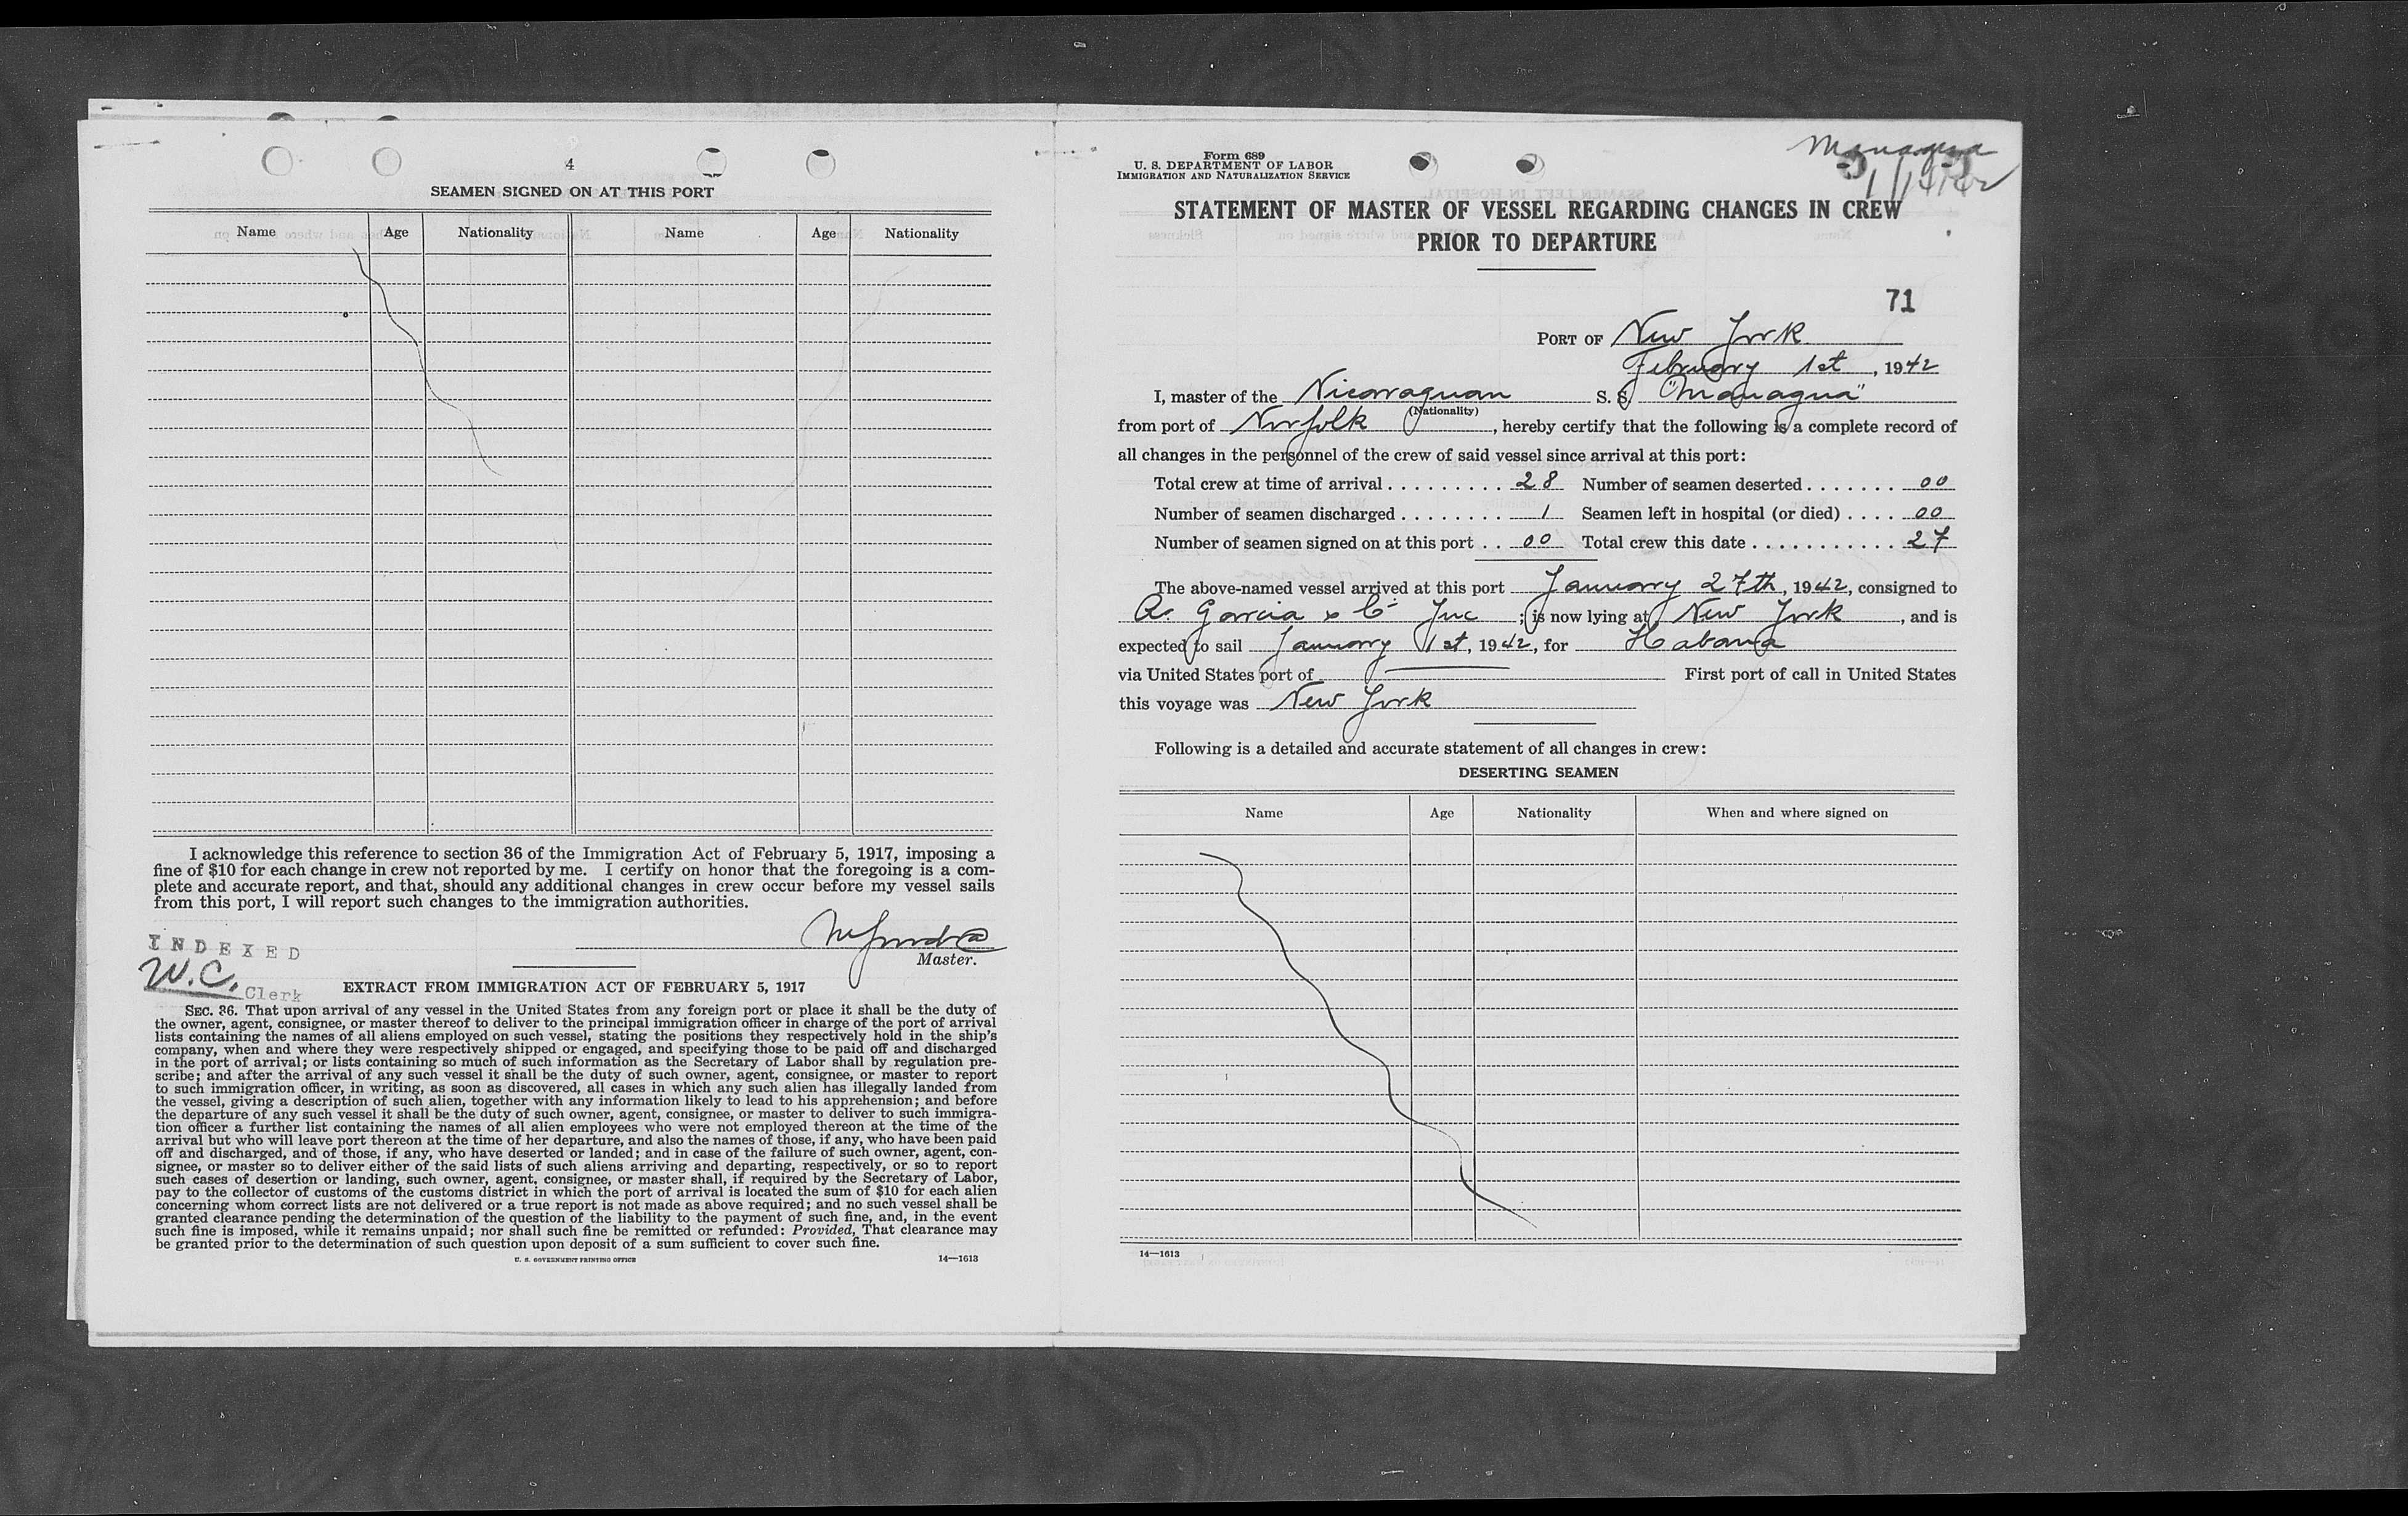 4
SEAMEN SIGNED ON AT THIS PORT
Name Age Nationality Name Age Nationality
I acknowledge this reference to section 36 of the Immigration Act of February 5, 1917, imposing a
fine of $10 for each change in crew not reported by me. I certify on honor that the foregoing is a com-
plete and accurate report, and that, should any additional changes in crew occur before my vessel sails
from this port, I will report such changes to the immigration authorities.
Master.
INDEXED
W.C. Clerk
EXTRACT FROM IMMIGRATION ACT OF FEBRUARY 5, 1917
SEC. 36. That upon arrival of any vessel in the United States from any foreign port or place it shall be the duty of
the owner, agent, consignee, or master thereof to deliver to the principal immigration officer in charge of the port of arrival
lists containing the names of all aliens employed on such vessel, stating the positions they respectively hold in the ship's
company, when and where they were respectively shipped or engaged, and specifying those to be paid off and discharged
in the port of arrival; or lists containing so much of such information as the Secretary of Labor shall by regulation pre-
scribe; and after the arrival of any such vessel it shall be the duty of such owner, agent, consignee, or master to report
to such immigration officer, in writing, as soon as discovered, all cases in which any such alien has illegally landed from
the vessel, giving a description of such alien, together with any information likely to lead to his apprehension; and before
the departure of any such vessel it shall be the duty of such owner, agent, consignee, or master to deliver to such immigra-
tion officer a further list containing the names of all alien employees who were not employed thereon at the time of the
arrival but who will leave port thereon at the time of her departure, and also the names of those, if any, who have been paid
off and discharged, and of those, if any, who have deserted or landed; and in case of the failure of such owner, agent, con-
signee, or master so to deliver either of the said lists of such aliens arriving and departing, respectively, or so to report
such cases of desertion or landing, such owner, agent, consignee, or master shall, if required by the Secretary of Labor,
pay to the collector of customs of the customs district in which the port of arrival is located the sum of $10 for each alien
concerning whom correct lists are not delivered or a true report is not made as above required; and no such vessel shall be
granted clearance pending the determination of the question of the liability to the payment of such fine, and, in the event
such fine is imposed, while it remains unpaid; nor shall such fine be remitted or refunded: Provided, That clearance may
be granted prior to the determination of such question upon deposit of a sum sufficient to cover such fine.
U. S. GOVERNMENT PRINTING OFFICE 14—1613
Form 689
U. S. DEPARTMENT OF LABOR
IMMIGRATION AND NATURALIZATION SERVICE
Managua
STATEMENT OF MASTER OF VESSEL REGARDING CHANGES IN CREW
PRIOR TO DEPARTURE
71
PORT OF New York
February 1st, 1942
I, master of the Nicaraguan S. S. "Managua"
(Nationality)
from port of Norfolk, hereby certify that the following is a complete record of
all changes in the personnel of the crew of said vessel since arrival at this port:
Total crew at time of arrival . . . . . . . . . . 28 Number of seamen deserted . . . . . . . 00
Number of seamen discharged . . . . . . . . 1 Seamen left in hospital (or died) . . . . 00
Number of seamen signed on at this port . . 00 Total crew this date . . . . . . . . . . . 27
The above-named vessel arrived at this port January 27th, 1942, consigned to
A. Garcia & Co Inc ; is now lying at New York, and is
expected to sail January 1st, 1942, for Habana
via United States port of ——— First port of call in United States
this voyage was New York
Following is a detailed and accurate statement of all changes in crew:
DESERTING SEAMEN
Name Age Nationality When and where signed on
14—1613